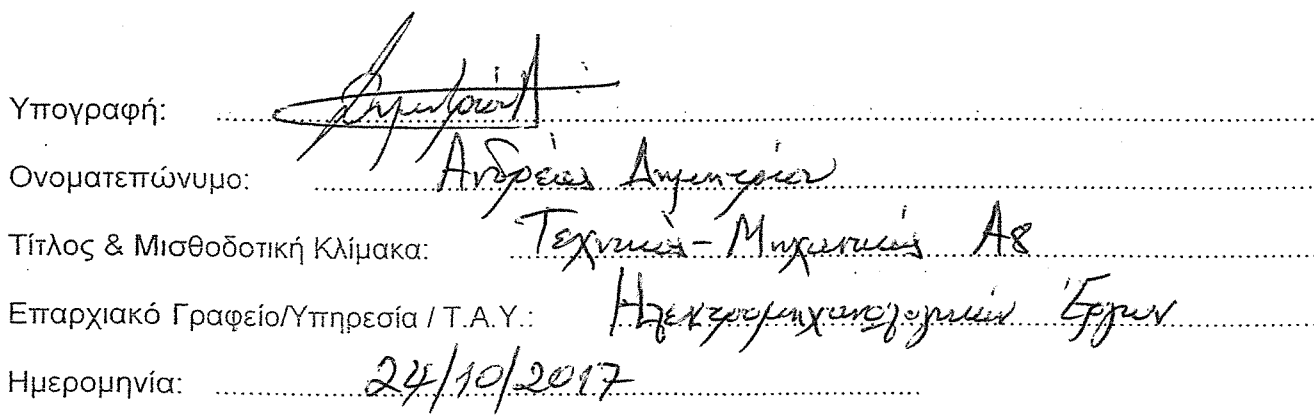 Υπογραφή: Δημητρίου Α
Ονοματεπώνυμο: Ανδρέας Δημητρίου
Τίτλος & Μισθοδοτική Κλίμακα: Τεχνικός-Μηχανικός Α8
Επαρχιακό Γραφείο/Υπηρεσία / Τ.Α.Υ.: Ηλεκτρομηχανολογικών Έργων
Ημερομηνία: 24/10/2017